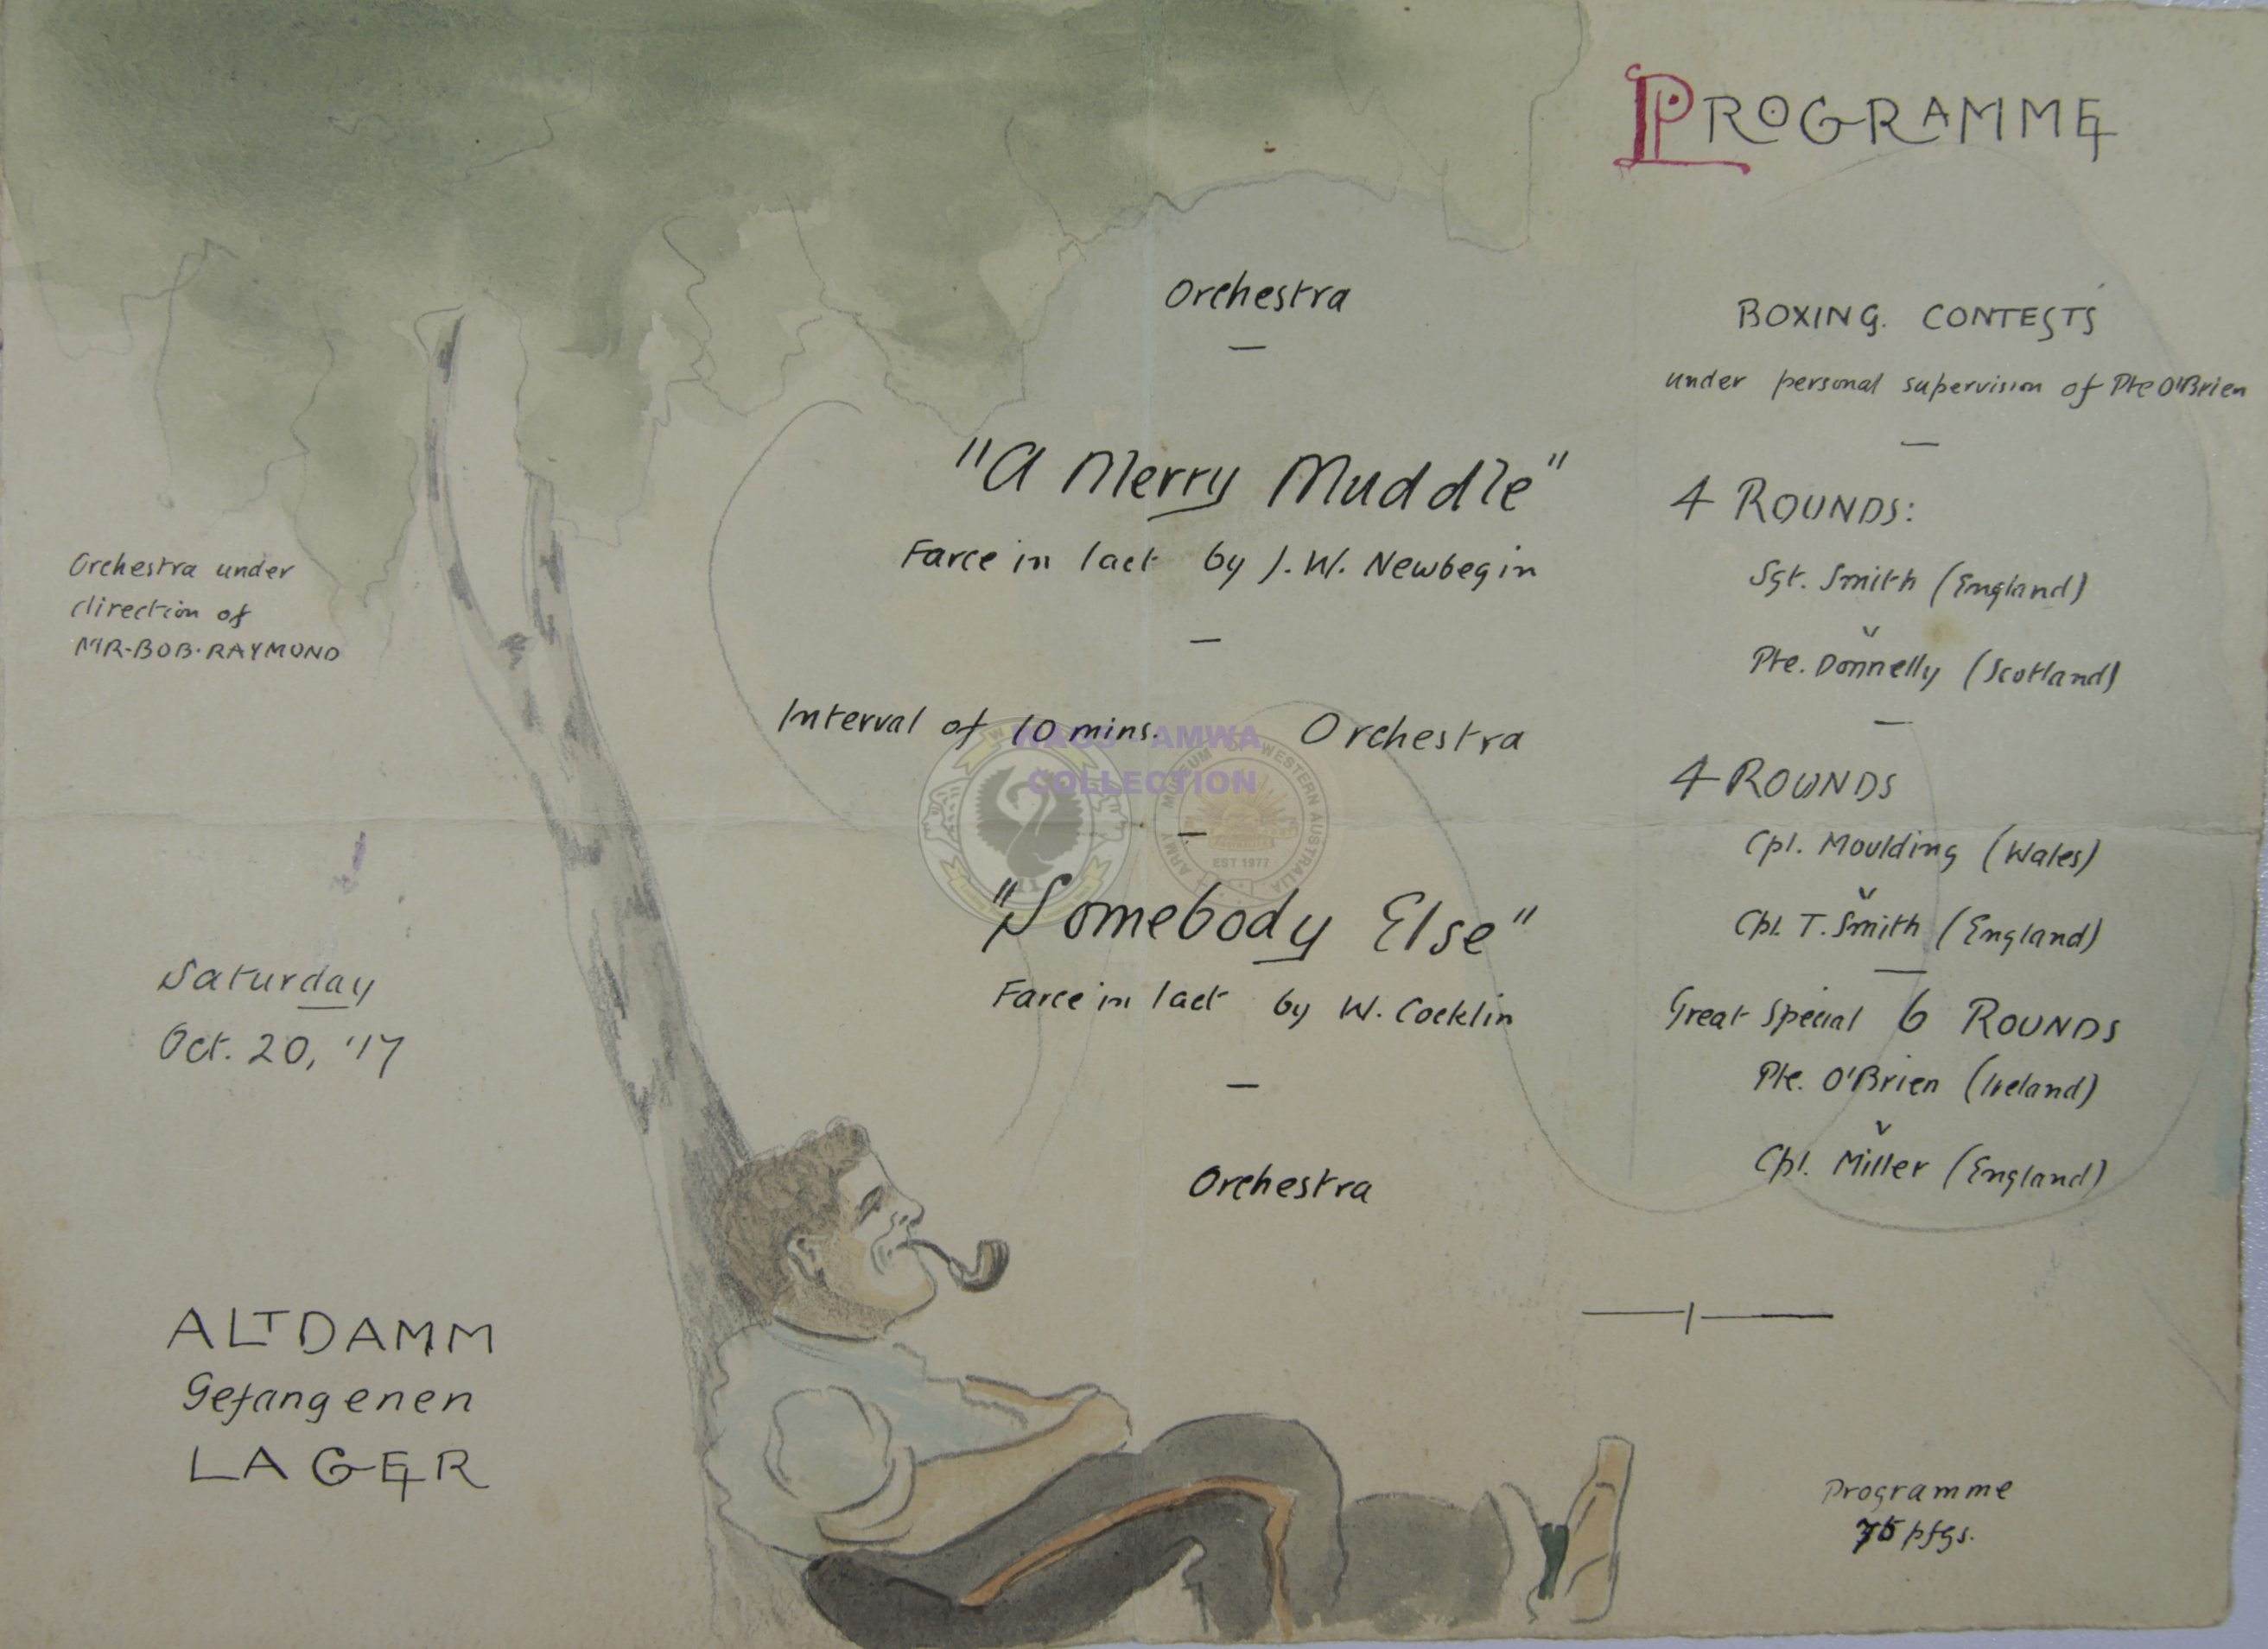 PROGRAMME
Orchestra under
direction of
MR. BOB. RAYMOND
Saturday
Oct. 20, '17
ALTDAMM
Gefangenen
LAGER
Orchestra
—
"A Merry Muddle"
Farce in 1 act by J. W. Newbegin
—
Interval of 10 mins. Orchestra
—
"Somebody Else"
Farce in 1 act by W. Cocklin
—
Orchestra
BOXING. CONTESTS
under personal supervision of Pte O'Brien
—
4 ROUNDS:
Sgt. Smith (England)
v
Pte. Donnelly (Scotland)
—
4 ROUNDS
Cpl. Moulding (Wales)
v
Cpl. T. Smith (England)
—
Great Special 6 ROUNDS
Pte. O'Brien (Ireland)
v
Cpl. Miller (England)
Programme
75 pfgs.
WAGS AMWA
COLLECTION
ARMY MUSEUM OF WESTERN AUSTRALIA
EST 1977